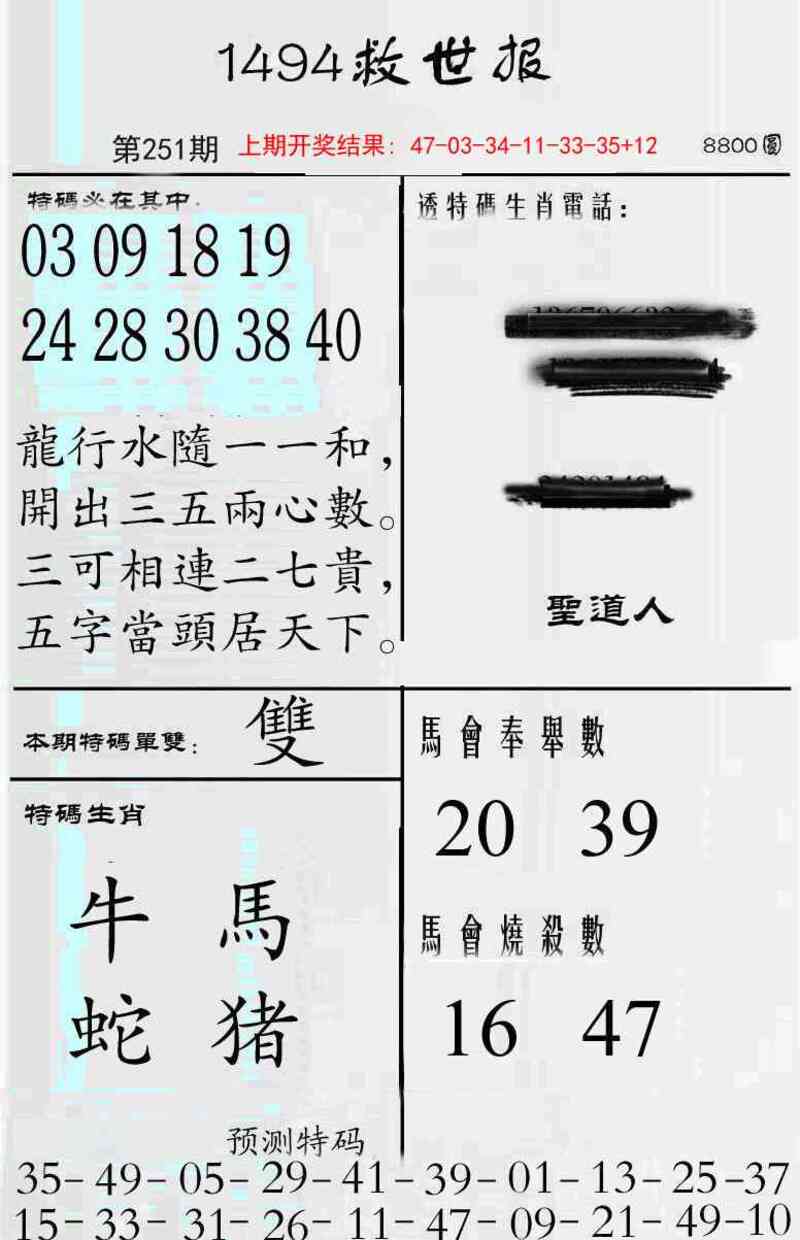 1494救世报
第251期 上期开奖结果：47-03-34-11-33-35+12 8800圓
特碼必在其中.
03 09 18 19
24 28 30 38 40
龍行水隨一一和，
開出三五兩心數。
三可相連二七貴，
五字當頭居天下。
透特碼生肖電話：
聖道人
本期特碼單雙： 雙
特碼生肖
牛 馬
蛇 猪
馬會奉舉數
20 39
馬會燒殺數
16 47
预测特码
35-49-05-29-41-39-01-13-25-37
15-33-31-26-11-47-09-21-49-10